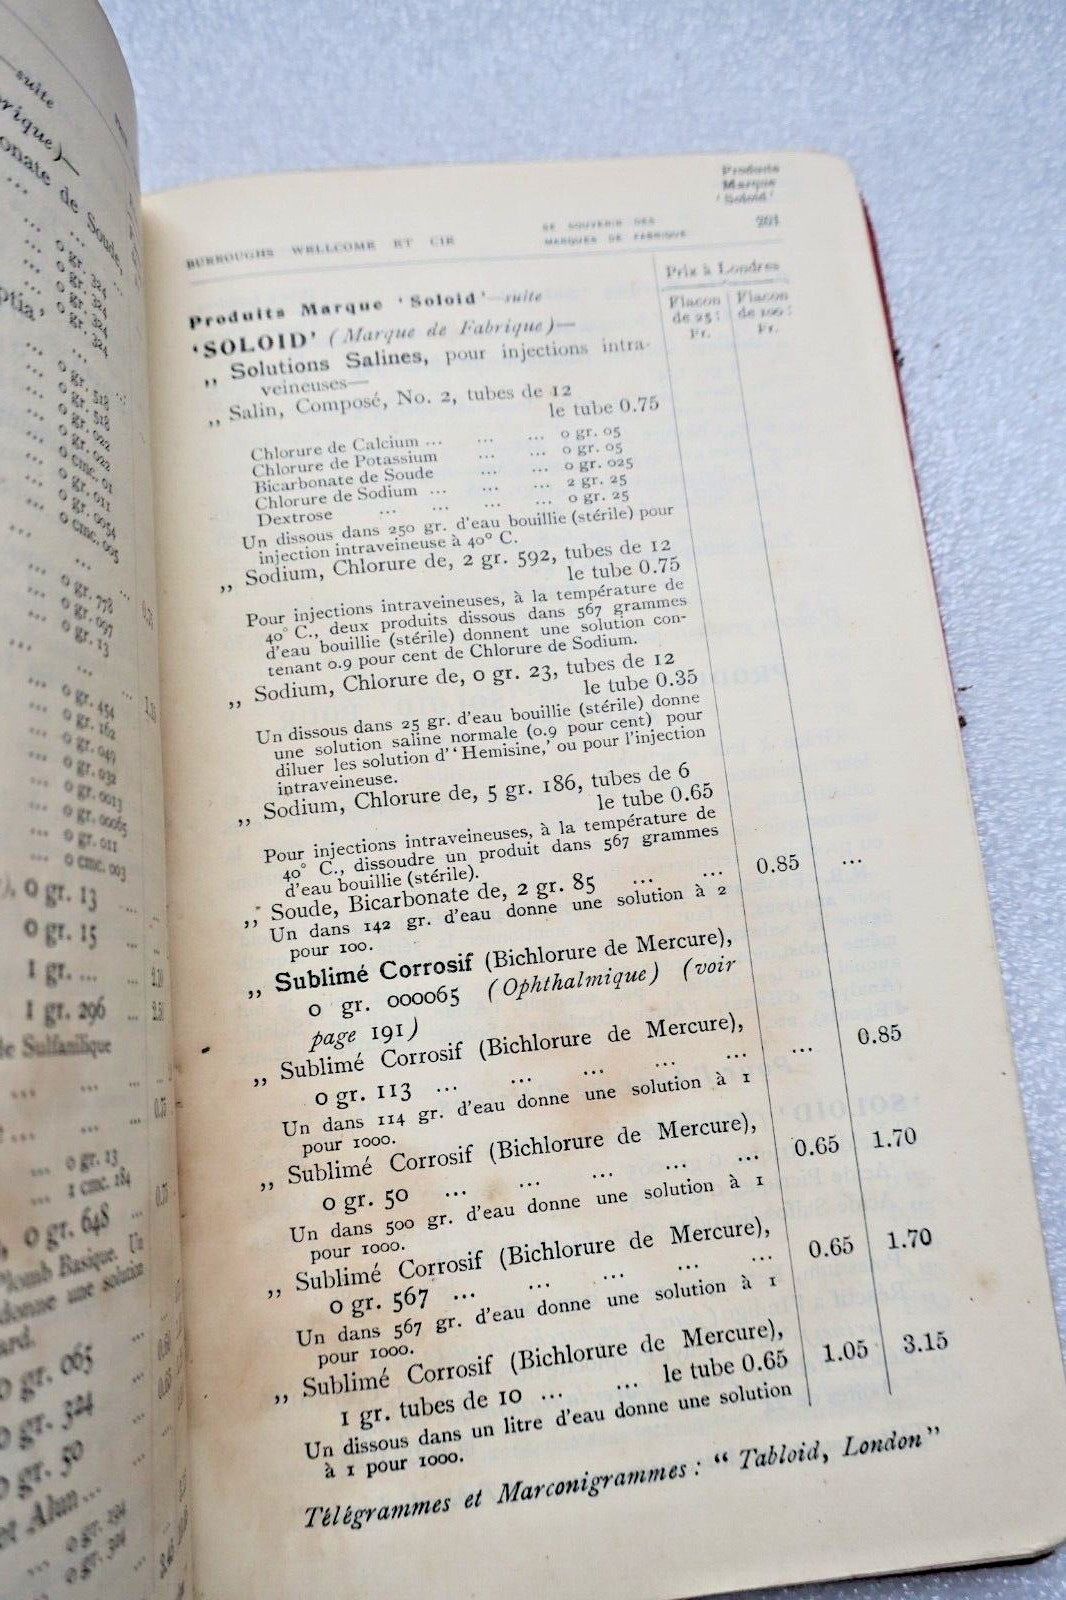 suite
rique)—
onate de Soude,
... ...
... 0 gr. 324
... 0 gr. 324
... 0 gr. 324
... 0 gr. 324
... 0 gr. 518
... 0 gr. 518
... 0 gr. 022
... 0 gr. 022
... 0 cmc. 01
... 0 gr. 011
... 0 gr. 0054
... 0 cmc. 005
... 0 gr. 778
... 0 gr. 097
... 0 gr. 13
... 0 gr. 454
... 0 gr. 162
... 0 gr. 049
... 0 gr. 032
... 0 gr. 0013
... 0 gr. 00065
... 0 gr. 011
... 0 cmc. 003
0 gr. 13 ...
0 gr. 15 ...
1 gr. ... ...
1 gr. 296 ...
de Sulfanilique
... 0 gr. 13
... 1 cmc. 184
0 gr. 648 ...
Plomb Basique. Un
donne une solution
ard.
0 gr. 065
0 gr. 324
0 gr. 50
et Alun...
... 0 gr. 194
... 0 gr. 324
Produits
Marque
'Soloid'
BURROUGHS WELLCOME ET CIE SE SOUVENIR DES
MARQUES DE FABRIQUE 201
Produits Marque 'Soloid'—suite Prix à Londres
'SOLOID' (Marque de Fabrique)— Flacon de 25: Fr. Flacon de 100: Fr.
„ Solutions Salines, pour injections intra-
veineuses—
„ Salin, Composé, No. 2, tubes de 12
le tube 0.75
Chlorure de Calcium ... ... ... 0 gr. 05
Chlorure de Potassium ... ... 0 gr. 05
Bicarbonate de Soude ... ... 0 gr. 025
Chlorure de Sodium ... ... ... 2 gr. 25
Dextrose ... ... ... ... 0 gr. 25
Un dissous dans 250 gr. d'eau bouillie (stérile) pour
injection intraveineuse à 40° C.
„ Sodium, Chlorure de, 2 gr. 592, tubes de 12
le tube 0.75
Pour injections intraveineuses, à la température de
40° C., deux produits dissous dans 567 grammes
d'eau bouillie (stérile) donnent une solution con-
tenant 0.9 pour cent de Chlorure de Sodium.
„ Sodium, Chlorure de, 0 gr. 23, tubes de 12
le tube 0.35
Un dissous dans 25 gr. d'eau bouillie (stérile) donne
une solution saline normale (0.9 pour cent) pour
diluer les solution d' 'Hemisine,' ou pour l'injection
intraveineuse.
„ Sodium, Chlorure de, 5 gr. 186, tubes de 6
le tube 0.65
Pour injections intraveineuses, à la température de
40° C., dissoudre un produit dans 567 grammes
d'eau bouillie (stérile).
„ Soude, Bicarbonate de, 2 gr. 85 ... ... 0.85 ...
Un dans 142 gr. d'eau donne une solution à 2
pour 100.
„ Sublimé Corrosif (Bichlorure de Mercure),
0 gr. 000065 (Ophthalmique) (voir
page 191)
„ Sublimé Corrosif (Bichlorure de Mercure),
0 gr. 113 ... ... ... ... ... ... 0.85
Un dans 114 gr. d'eau donne une solution à 1
pour 1000.
„ Sublimé Corrosif (Bichlorure de Mercure),
0 gr. 50 ... ... ... ... ... 0.65 1.70
Un dans 500 gr. d'eau donne une solution à 1
pour 1000.
„ Sublimé Corrosif (Bichlorure de Mercure),
0 gr. 567 ... ... ... ... ... 0.65 1.70
Un dans 567 gr. d'eau donne une solution à 1
pour 1000.
„ Sublimé Corrosif (Bichlorure de Mercure),
1 gr. tubes de 10 ... ... le tube 0.65 1.05 3.15
Un dissous dans un litre d'eau donne une solution
à 1 pour 1000.
Télégrammes et Marconigrammes : “ Tabloid, London ”